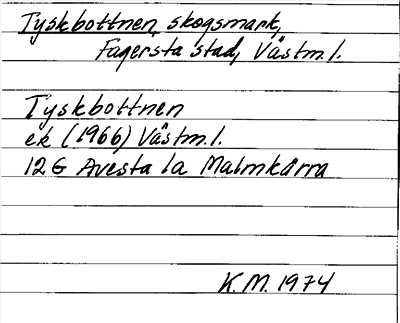 Tyskbottnen, skogsmark,
Fagersta stad, Västm.l.
Tyskbottnen
ek (1966) Västm.l.
12 G Avesta 1a Malmkärra
K.M. 1974